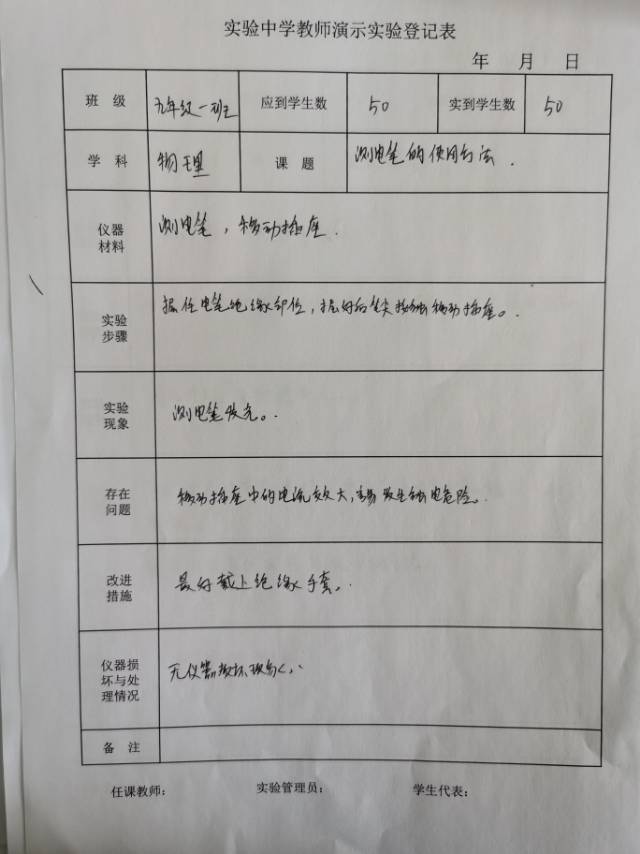 实验中学教师演示实验登记表
年 月 日
班 级 九年级一班 应到学生数 50 实到学生数 50
学 科 物理 课 题 测电笔的使用方法.
仪器材料 测电笔,移动插座.
实验步骤 握住电笔绝缘部位,握好后笔尖接触移动插座。
实验现象 测电笔发光。
存在问题 移动插座中的电流较大,易发生触电危险。
改进措施 最好戴上绝缘手套。
仪器损坏与处理情况 无仪器损坏现象
备 注
任课教师: 实验管理员: 学生代表: